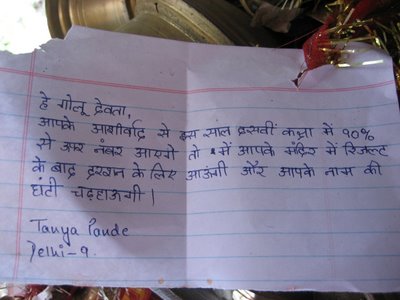 हे गोलू देवता,
आपके आशीर्वाद से इस साल दसवीं कक्षा में ९०%
से उपर नंबर आएगे तो मैं आपके मंदिर में रिजल्ट
के बाद दरशन के लिए आउंगी और आपके नाम की
घंटी चढ़हाऊगी।
Tanya Pande
Delhi-9.